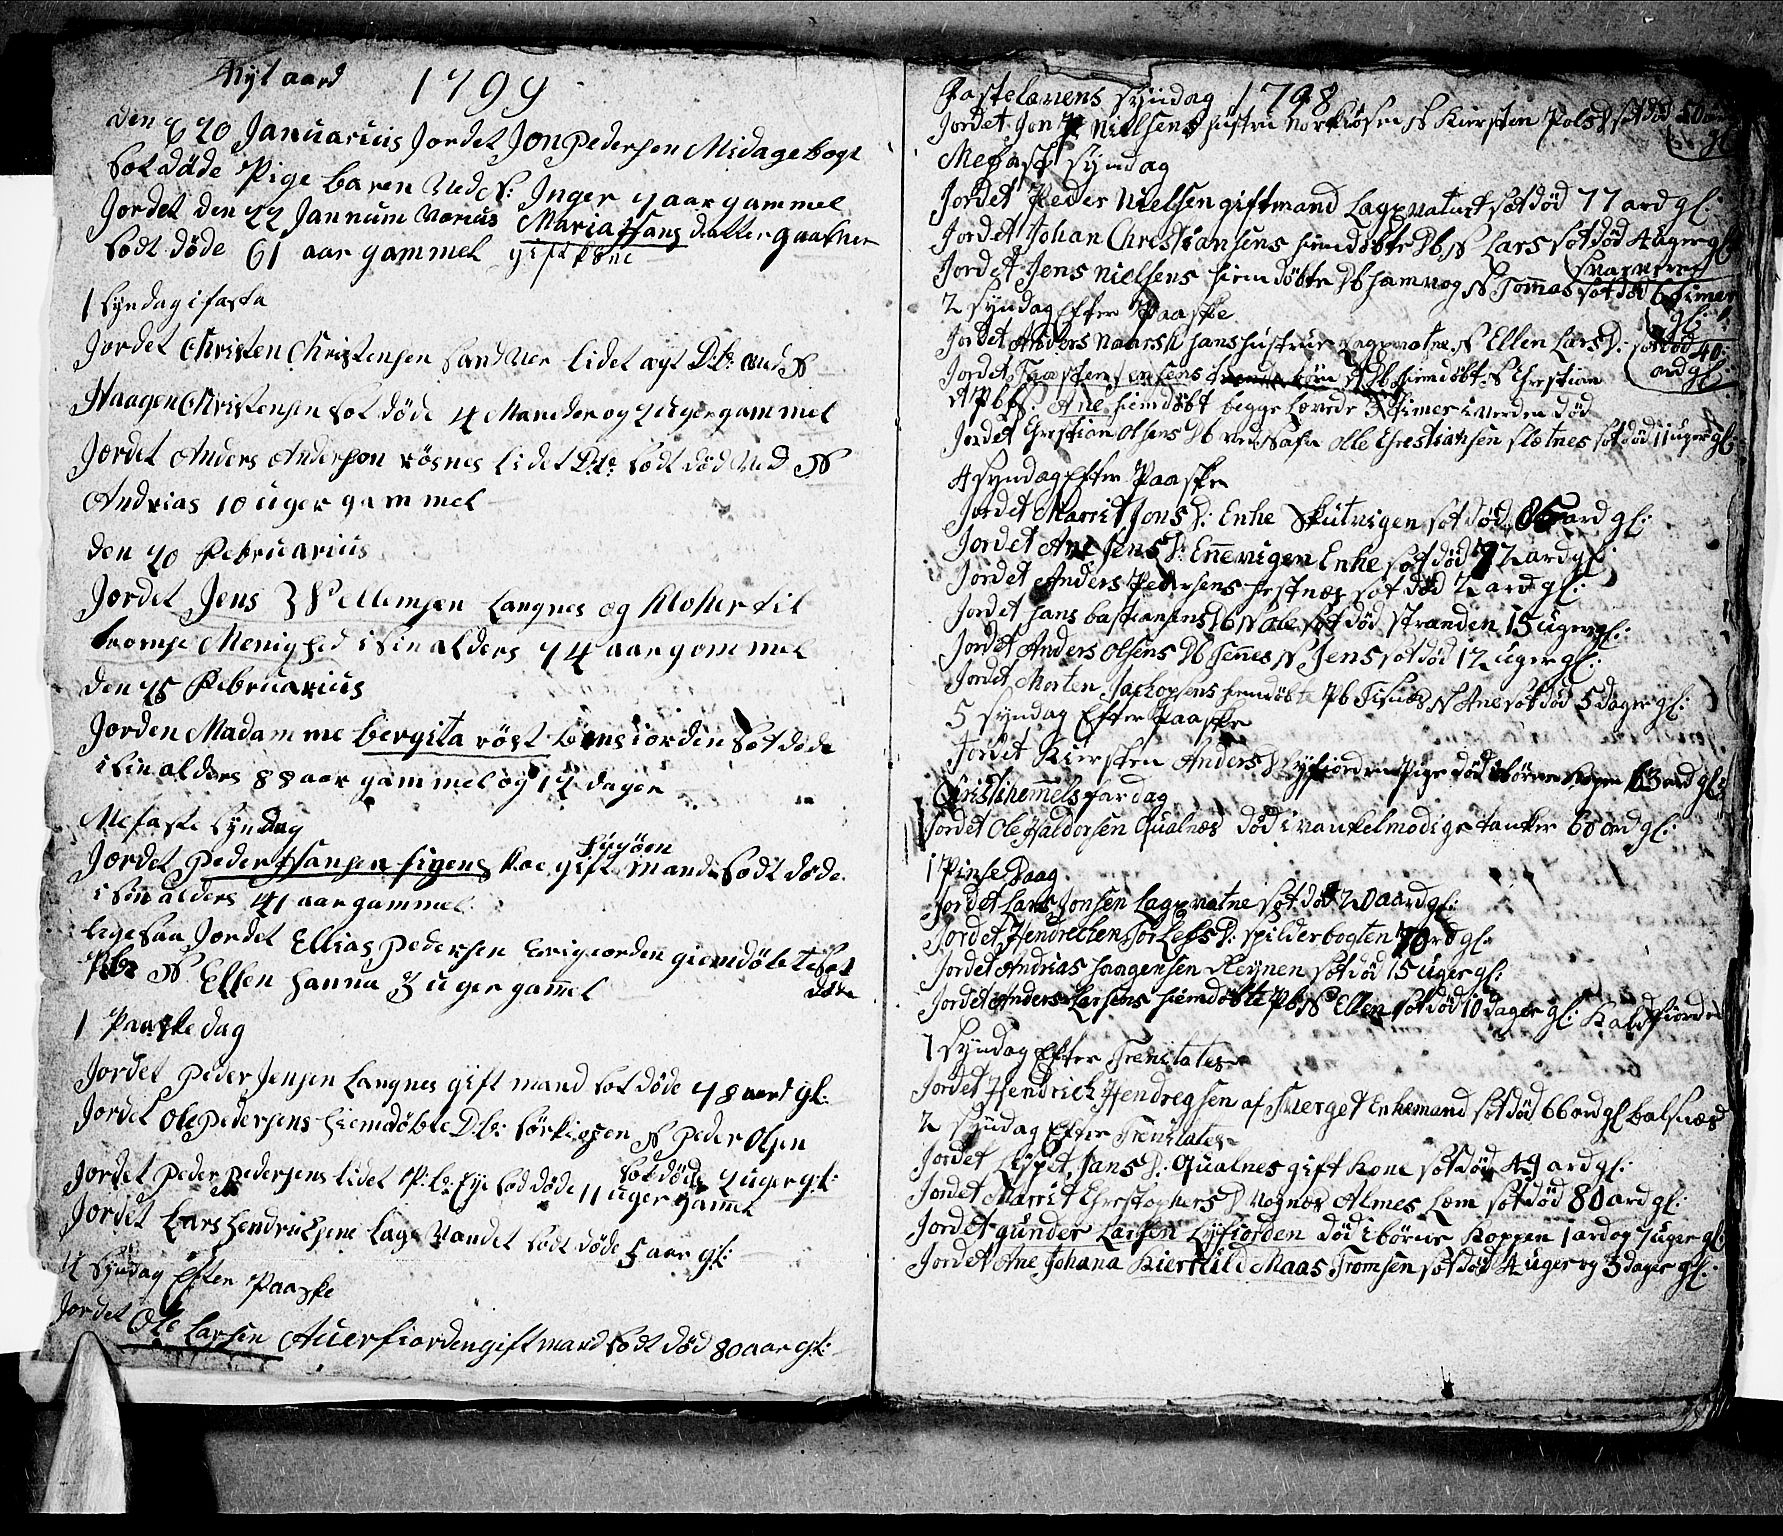 Nyt aard 1799
den 620 Januarius Jordet Jon Pedersen Midagebogt
sotdöde Pige baren Ved N: Inger 4 aar gammel
Jordet den 22 Jannum Varius Maria Hans datter gaasver
sodt döde 61 aar gammel gift kone
1 syndag i fasta
Jordet Christen Christensen Sandver lidet ægt D.b: ved N
Haagen Christensen sot döde 4 Maneder og 2 uger gammel
Jordet Anders Anderson rösnes lidet D.b: sodt död ved N
Andrias 10 uger gammel
den 20 Februarius
Jordet Jens Villemsen Langnes og Kloker til
tromsö Menighed i sin alders 74 aar gammel
den 25 Februarius
Jorden Madamme bergita röst bens iorden sot döde
i sin alders 88 aar gammel og 14 dager
Mefaste syndag
Jordet Peder Hansen gift mand sodt döde
i sin alders 41 aar gammel
lige saa Jordet Ellias Pedersen giemdöbte sot
P.b: N Ellen Hanna 3 uger gammel döde
1 Paaske dag
Jordet Peder Jensen Langnes gift mand sot döde 48 aard gl:
Jordet Ole Pedersens hiemdöbte D.b: N Peder Olsen
sot döde 2 uger gl:
Jordet Peder Pedersens lidet P:b: Eye sod döde 11 uger gammel
Jordet Lars Hendrichsens Lage Vandet sodt döde 5 aar gl:
4 Syndag Efter Paaske
Jordet Ole Larsen Auerfiorden gift mand sodt död 80 aar gl:
Fastelavens syndag 1798
Jordet Jon Nielsens hustru N Kiersten Pols D sot död 50 ard gl
Mefast syndag
Jordet Peder Nielsen gift mand Lagsvatnet sot död 77 ard gl:
Jordet Johan Christiansens hiemdöbte Db N Lars sot död 4 uger gl
Jordet Jens Nielsens hiemdöbte Db hamvog N Tommas sot död 6 timer
gl:
2 syndag Efter Paaske
Jordet Anders hans hustrue Lagsvatne N Ellen Lars D: sot död 40
ard gl:
Jordet Torsten Jensens Db hiemdöbt N Christian
Pb N. Ane hiemdöbt begge Levede 3 timer i verden död
Jordet Christian Olsens Db ved Olle Christiansen slætnes sot död 11 uger gl:
4 syndag Efter Paaske
Jordet Marrit Jons D: Enke Skutvigen sot död 86 ard gl:
Jordet Ane Jens D: Ennevigen Enke sot död 72 ard gl:
Jordet Anders Pedersens hestnæs sot död 2 ard gl:
Jordet hans bastiansens Db N Ole sot död stranden 15 uger gl:
Jordet Anders Olsens Db hennes N Jens sot död 12 uger gl:
Jordet Morten Jackopsens hiemdöbte Pb Tisnæs N Ane sot död 5 dager gl:
5 syndag Efter Paaske
Jordet Kiersten Anders D Lyfiorden Pige död i börne kopper 63 ard gl:
Christihemmelsfardag
Jordet Ole Haldorsen Qualnæs död i vankelmodige tanker 60 ard gl:
1 Pinse Daag
Jordet Lars Jonsen Lagsvatne sot död 20 aard gl:
Jordet Hendrichen Torlefs D: spilderbogten 70 ard gl:
Jordet Andrias Haagensen Reynen sot död 15 uger gl:
Jordet Anders Larsens hiemdöbte Pb N Ellen sot död 10 dager gl: Kaldfiorden
1 Syndag Efter Trenitates
Jordet Hendrick Hendregsen af Suerget Enkemand sot död 66 ard gl balsnæs
2 syndag Efter Trenitates
Jordet Lispet Jans D: Qualnes gift Kone sot död 49 ard gl:
Jordet Marrit Chrestophers D Vognes Almes Lem sot död 80 ard gl:
Jordet gunder Larsen Lyfiorden död i börne koppen 1 ard og 7 uger gl
Jordet Ane Johana Kierstild Maas Tromsen sot död 4 uger og 3 dager gl: